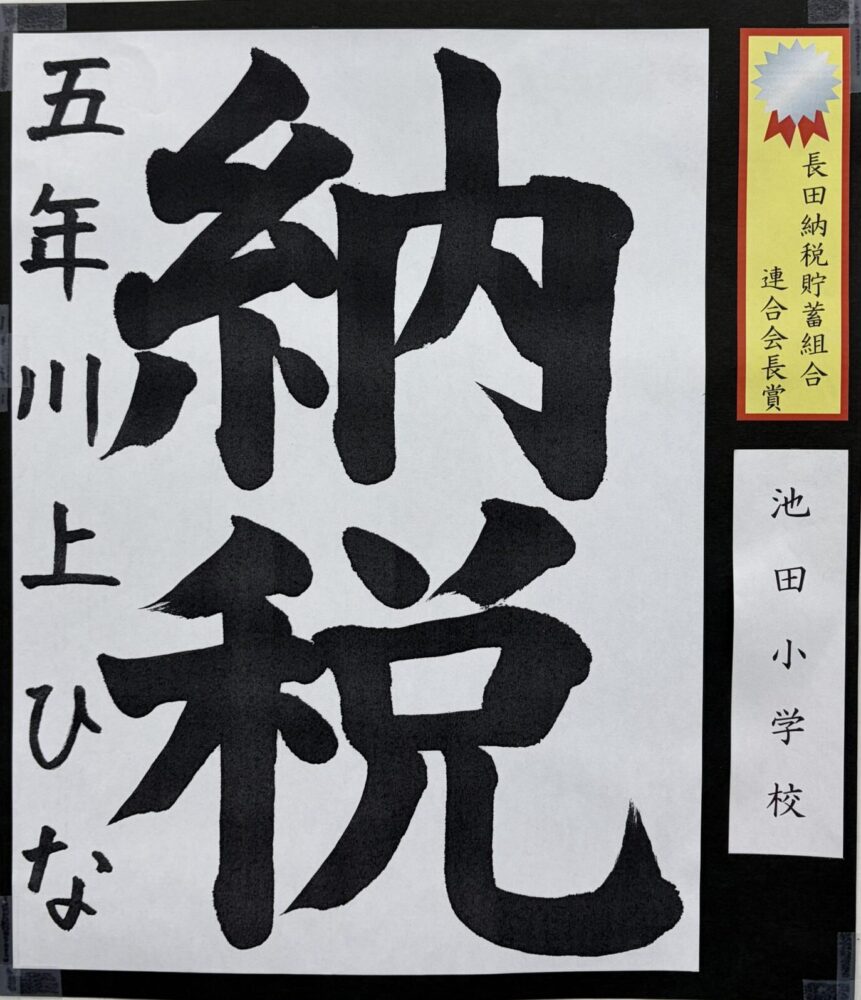 長田納税貯蓄組合
連合会長賞
池田小学校
納税
五年川上ひな